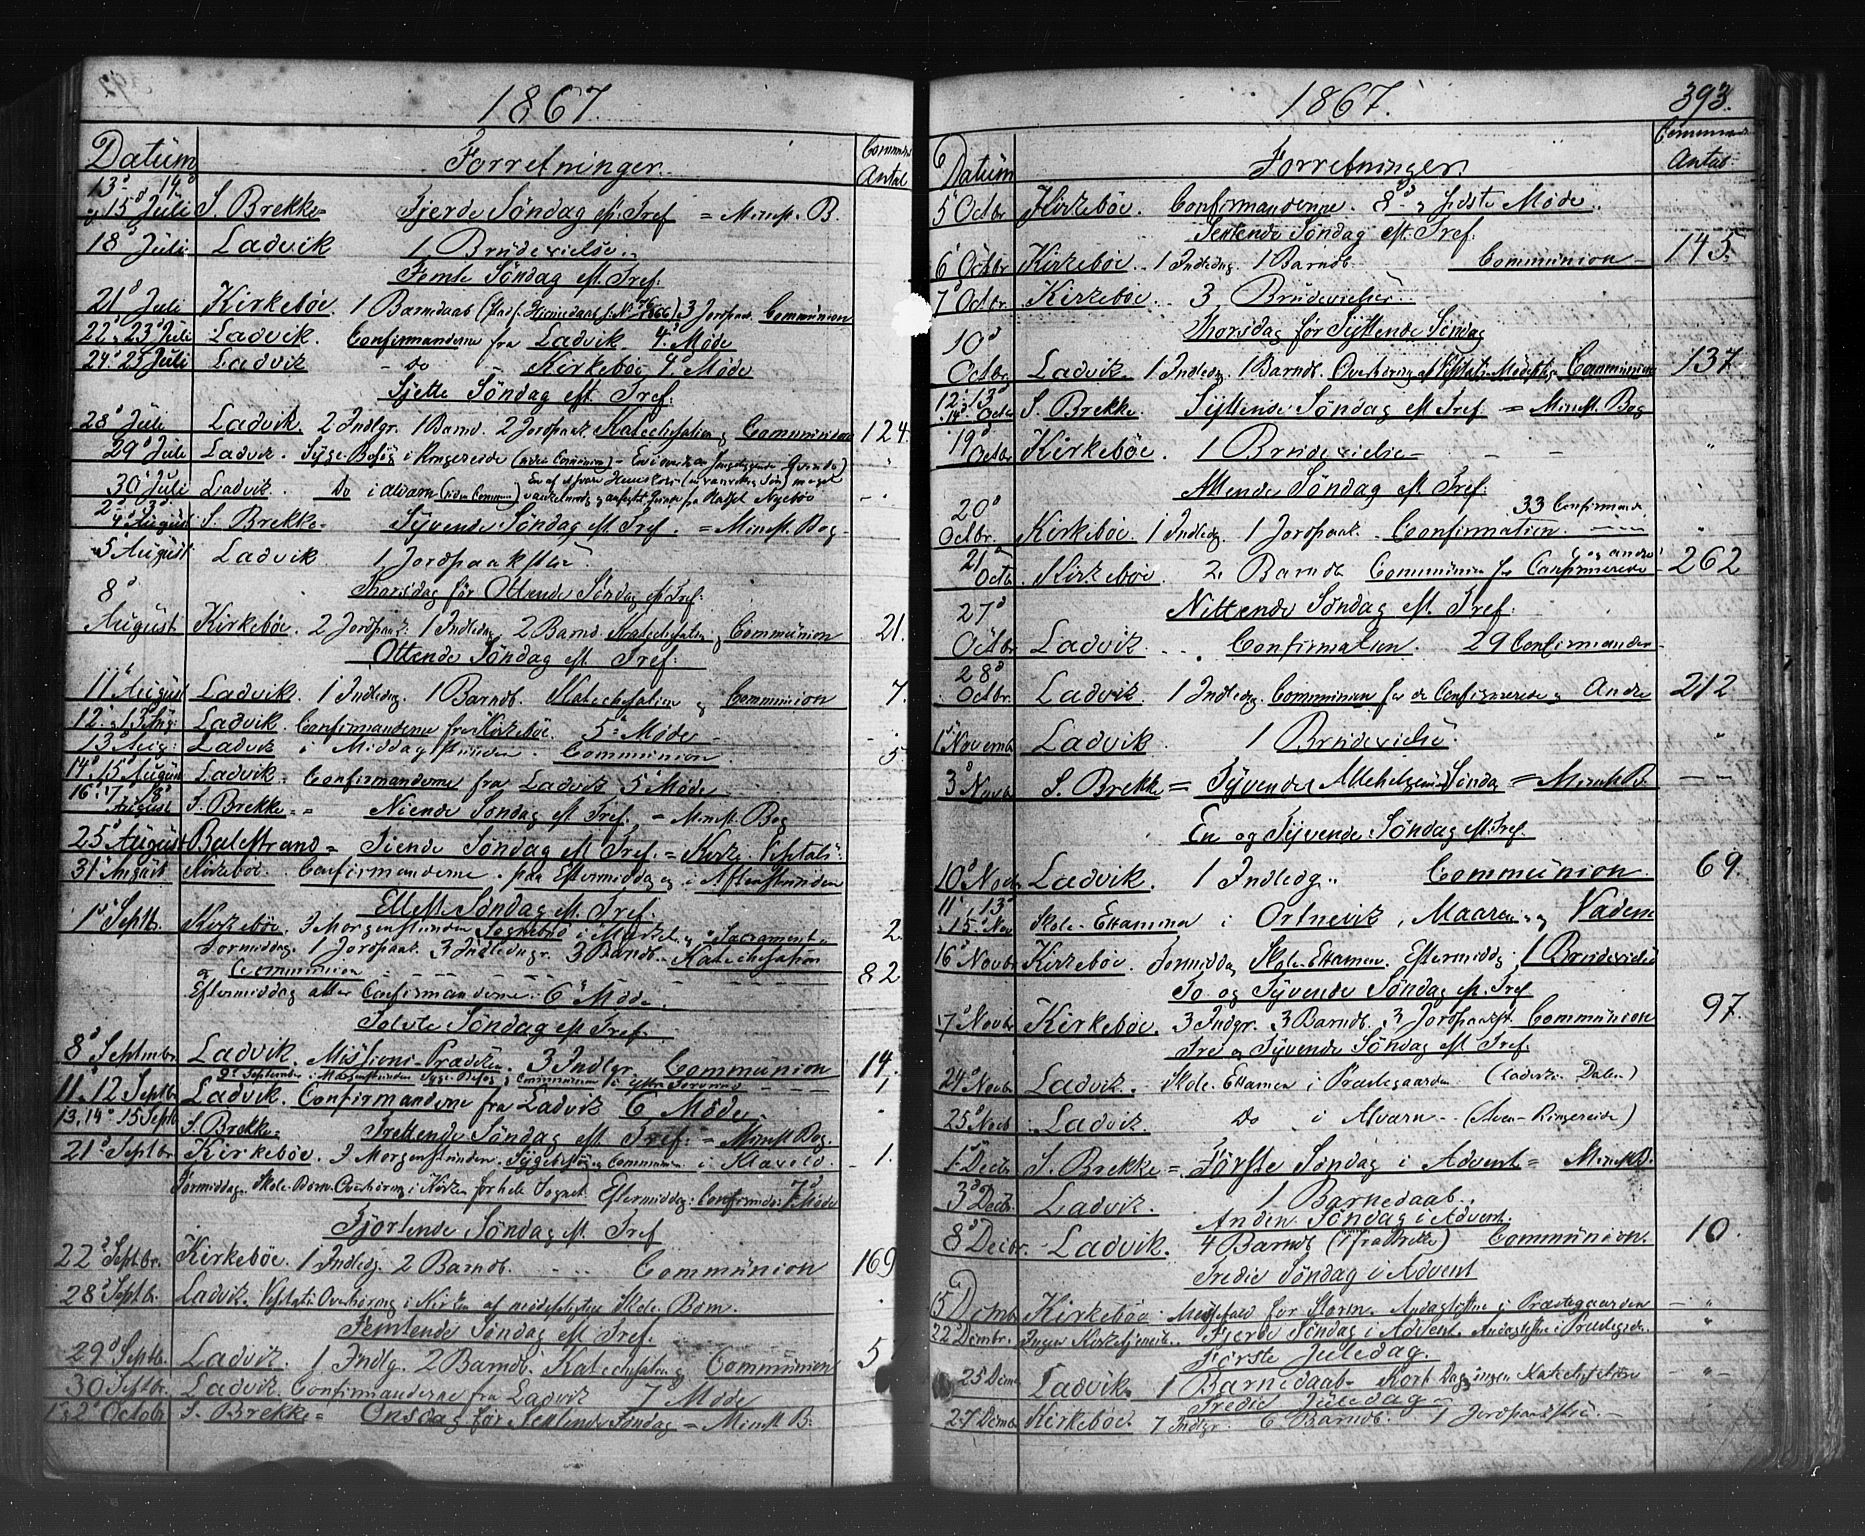 1867.
Datum Forretninger. Commun. Antal
13de 14de
og 15de Juli S. Brekke Fjerde Söndag eft. Tref = Minist. B.
18de Juli Ladvik 1 Brudevielse.
Femte Söndag eft. Tref:
21de Juli Kirkeböe. 1 Barnedaab 3 Jordpaak. Communion
22de 23de Juli Ladvik. Confirmanderne fra Ladvik 4de Möde
24de 25de Juli Ladvik - do - Kirkeböe 4de Möde
Sjette Söndag eft. Tref:
28de Juli Ladvik. 2 Indlgr. 1 Barnd. 2 Jordpaak. Katechisation og Communion 124.
29de Juli Ladvik. Syge-Besög i Ringereide
30de Juli Ladvik. Do i Alvarn
2de 3de
4de August S. Brekke Syvende Söndag eft. Tref. = Minist. Bog
5te August Ladvik 1 Jordpaakastelse
Thorsdag för Ottende Söndag eft. Tref:
8de
August Kirkeböe. 2 Jordpaak. 1 Indledg. 2 Barnd. Katechisation og Communion 21.
Ottende Söndag eft. Tref:
11te August Ladvik. 1 Indledg. 1 Barndb. Katechisation og Communion 7.
12te og 13de Aug: Ladvik. Confirmanderne fra Kirkeböe. 5te Möde
13de Aug: Ladvik i Middagstunden. Communion. 5
14de 15de August Ladvik. Confirmanderne fra Ladvik 5te Möde
16de 17de 18de
August S. Brekke = Niende Söndag eft. Tref. = Minist. Bog
25de August Balestrand = Tiende Söndag eft. Tref. = Kirke Visitats:
31te August Kirkeböe. Confirmanderne. paa Eftermiddag og i Aftenstunden
Ellefte Söndag eft. Tref.
1ste Septbr. Kirkeböe. I Morgenstunden Sognebud i Sacrament 2
Formiddag. 1 Jordpaak. 3 Indledngr. 3 Barndb. Katechisation
og Communion 82
Eftermiddag atter Confirmanderne. 6te Möde.
Tolvte Söndag eft. Tref.
8de Septembr. Ladvik. Missions-Prædiken. 3 Indlgr. Communion 14.
9de September i Morgenstunden Syge-Besög og Communion i 1
11te 12te Septbr Ladvik. Confirmanderne fra Ladvik 6te Möde.
13, 14de 15de Septb S. Brekke = Trettende Söndag eft. Tref: = Minist. Bog.
21de Septbr. Kirkeböe. I Morgenstunden. Sygebesög og Communion i Klævold 1.
Formiddag. Skole-Börn Overhöring i Kirken for hele Sognet. Eftermiddag: Confirmder 7de Möde
Fjortende Söndag eft. Tref
22de Septbr. Kirkeböe. 1 Indledg. 2 Barndb. Communion 169
28de Septbr. Ladvik. Visitats Overhöring i Kirken af mödepligtige Skole-Börn.
Femtende Söndag eft. Tref.
29de Septb. Ladvik. 1 Indlg. 2 Barndb. Katechisation og Communion 5
30te Septbr. Ladvik. Confirmanderne fra Ladvik 7de Möde
1te 2de Octobr S. Brekke = Onsdag för Sextende Söndag = Minist. B:
1867. 393.
Datum Forretninger. Commun. Antal
5te Octbr Kirkeböe. Confirmanderne. 8de og sidste Möde.
Sextende Söndag eft. Tref:
6te Octbr Kirkeböe. 1 Indledg. 1 Barndb. Communion 145.
7de Octbr. Kirkeböe. 3 Brudevielser.
Thorsdag för Syttende Söndag
10de
Octbr. Ladvik. 1 Indledg. 1 Barndb. Overhöring Communion 137.
12te 13de
14de Octbr S. Brekke. Syttende Söndag eft Tref = Minist. Bog
19de
Octbr Kirkeböe. 1 Brudevielse
Attende Söndag eft. Tref:
20de 33 Confirmande
Octbr. Kirkeböe 1 Indledg. 1 Jordpaak. Confirmation.
21de
Octb. Kirkeböe. 2 Barndb. Communion for Confirmerede og andre 262
27de Nittende Söndag eft. Tref:
Octbr Ladvik Confirmation. 29 Confirmander
28de
Octbr. Ladvik 1 Indledg. Communion for de Confirmerede og Andre 212
1te Novemb. Ladvik 1 Brudevielse.
3de Novb. S. Brekke = Tyvende Allehelgens Söndag = Minist B.
En og Tyvende Söndag eft. Tref.
10de Novbr Ladvik. 1 Indledg. Communion. 69.
11te, 13de
15de Nov Skole-Examina i Ortnevik, Maaren og Vadem
16de Novbr Kirkeböe. Formiddag Skole-Examen. Eftermiddg. 1 Brudevielse
To og Tyvende Söndag eft. Tref.
17de Novbr Kirkeböe. 3 Indgr. 3 Barndb. 3 Jordpaakst. Communion 97.
Tre og Tyvende Söndag eft Tref.
24de Novbr Ladvik. Skole-Examen i Præstegaarden (Ladviks Dalen)
25de Novb Ladvik Do i Alvarn - (Alvern-Ringereide)
1te Decbr. S. Brekke = Förste Söndag i Advent = Minist B.
3de Decbr. Ladvik. 1 Barnedaab.
Anden Söndag i Advent.
8de Decbr. Ladvik. 4 Barndb Communion. 10.
Tredie Söndag i Advent
15 Dcmbr Kirkeböe. Messefald for Storm. Andagtstne i Præstegaarden
22 Dcmbr. Ingen Kirketjeneste. Fjerde Söndag i Advent. Andagtstne i Præstegrdn.
Förste Juledag.
25 Dcmb Ladvik 1 Barnedaab. Kort Dag, ingen Katechisation
Tredie Juledag.
27 Dcmb Kirkeböe. 7 Indlgr. 6 Barndb. 1 Jordpaakst.